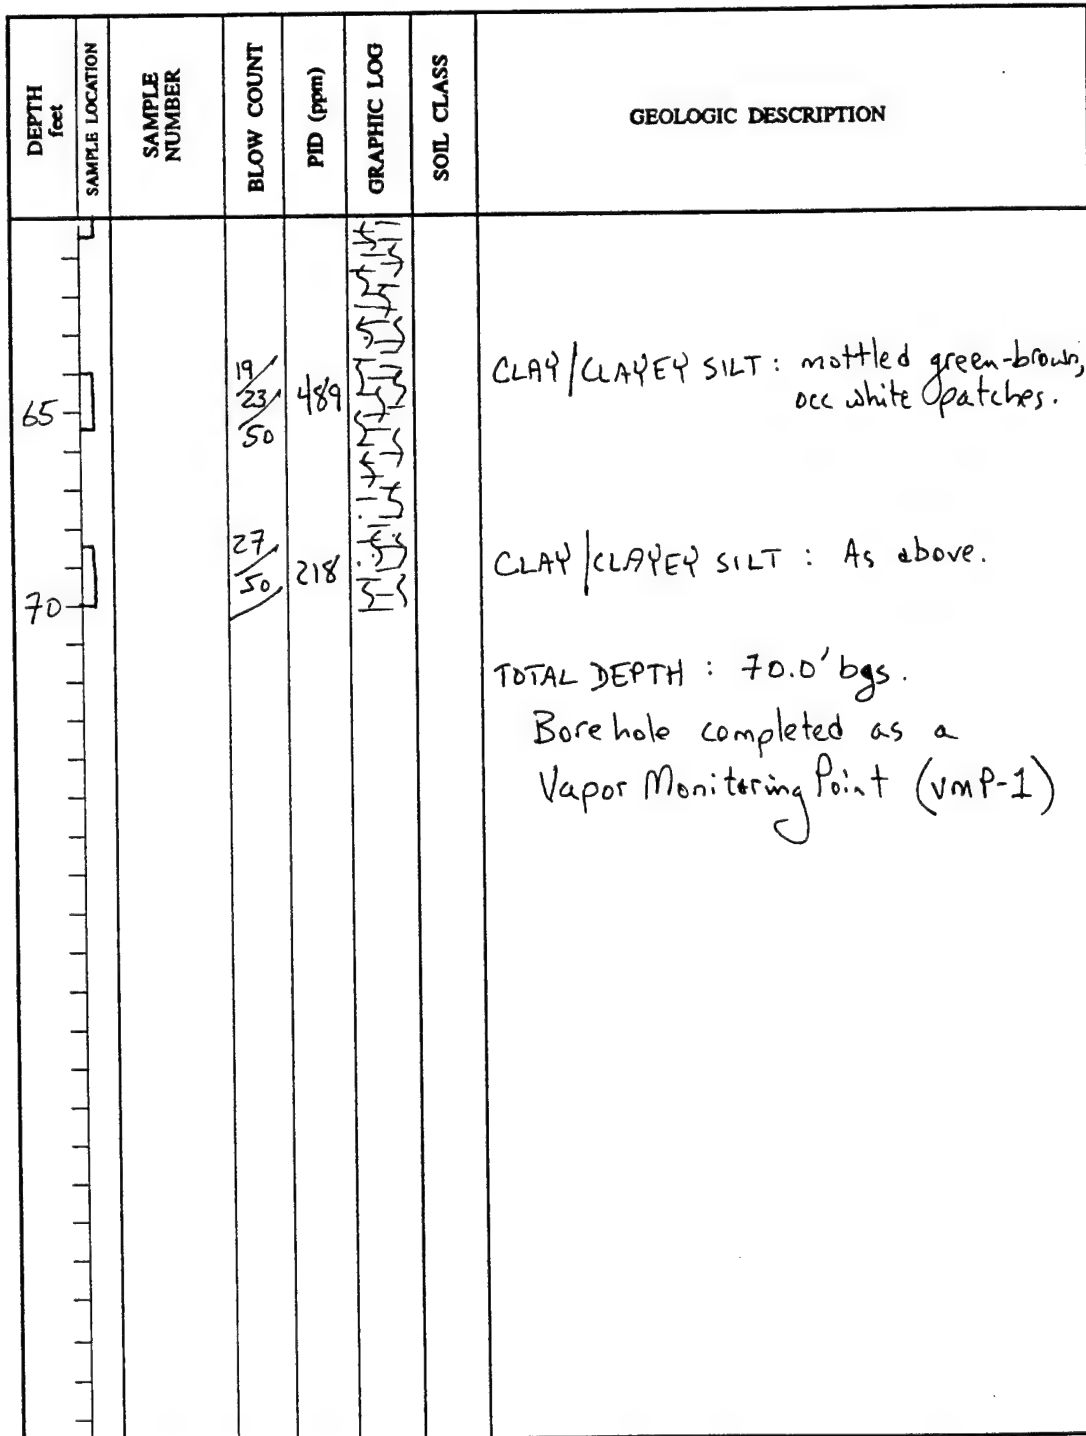 DEPTH
feet
SAMPLE LOCATION
SAMPLE
NUMBER
BLOW COUNT
PID (ppm)
GRAPHIC LOG
SOIL CLASS
GEOLOGIC DESCRIPTION
65
19/
23/
50
489
CLAY/CLAYEY SILT: mottled green-brown,
occ white patches.
70
27/
50/
218
CLAY/CLAYEY SILT: As above.
TOTAL DEPTH: 70.0' bgs.
Borehole completed as a
Vapor Monitoring Point (VMP-1)